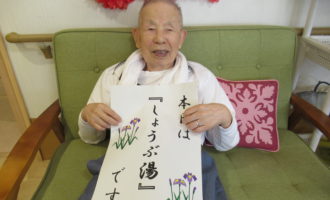 本日は
『しょうぶ湯』
です